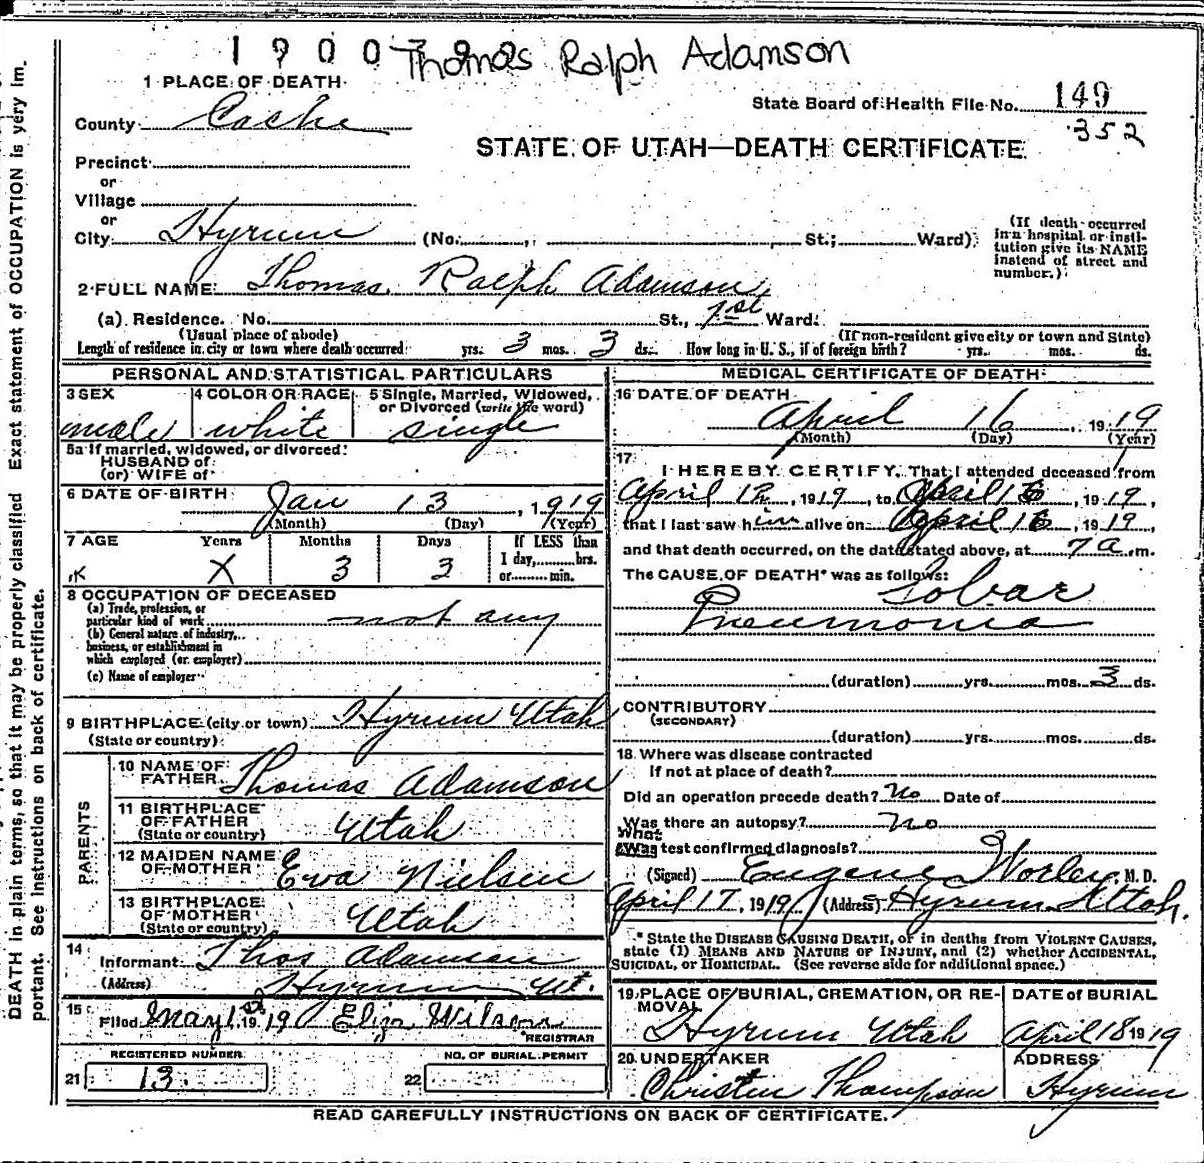 Thomas Ralph Adamson
1 PLACE OF DEATH
State Board of Health File No. 149
County Cache
352
STATE OF UTAH—DEATH CERTIFICATE
Precinct
or
Village
or
City Hyrum (No. St.; Ward)
(If death occurred in a hospital or institution give its NAME instead of street and number.)
2 FULL NAME Thomas Ralph Adamson
(a) Residence. No. St., 1st Ward.
(Usual place of abode) (If non-resident give city or town and State)
Length of residence in city or town where death occurred yrs. 3 mos. 3 ds. How long in U. S., if of foreign birth? yrs. mos. ds.
PERSONAL AND STATISTICAL PARTICULARS
3 SEX male
4 COLOR OR RACE white
5 Single, Married, Widowed, or Divorced (write the word) single
5a If married, widowed, or divorced
HUSBAND of
(or) WIFE of
6 DATE OF BIRTH Jan 13, 1919
(Month) (Day) (Year)
7 AGE Years Months Days If LESS than 1 day, hrs. or min.
X 3 3
8 OCCUPATION OF DECEASED
(a) Trade, profession, or particular kind of work not any
(b) General nature of industry, business, or establishment in which employed (or employer)
(c) Name of employer
9 BIRTHPLACE (city or town) Hyrum Utah
(State or country)
PARENTS
10 NAME OF FATHER Thomas Adamson
11 BIRTHPLACE OF FATHER (State or country) Utah
12 MAIDEN NAME OF MOTHER Eva Nielsen
13 BIRTHPLACE OF MOTHER (State or country) Utah
14 Informant Thos Adamson
(Address) Hyrum Ut.
15 Filed May 1, 1919 Eliza Wilson
REGISTRAR
REGISTERED NUMBER NO. OF BURIAL PERMIT
21 13 22
MEDICAL CERTIFICATE OF DEATH
16 DATE OF DEATH
April 16, 1919
(Month) (Day) (Year)
17 I HEREBY CERTIFY, That I attended deceased from
April 12, 1919, to April 16, 1919,
that I last saw him alive on April 16, 1919,
and that death occurred, on the date stated above, at 7 a.m.
The CAUSE OF DEATH* was as follows: Lobar
Pneumonia
(duration) yrs. mos. 3 ds.
CONTRIBUTORY
(SECONDARY)
(duration) yrs. mos. ds.
18 Where was disease contracted
If not at place of death?
Did an operation precede death? No Date of
Was there an autopsy? No
What test confirmed diagnosis?
(Signed) Eugene Worley, M. D.
April 17, 1919 (Address) Hyrum Utah.
* State the DISEASE CAUSING DEATH, or in deaths from VIOLENT CAUSES, state (1) MEANS AND NATURE OF INJURY, and (2) whether ACCIDENTAL, SUICIDAL, or HOMICIDAL. (See reverse side for additional space.)
19 PLACE OF BURIAL, CREMATION, OR REMOVAL DATE of BURIAL
Hyrum Utah April 18 1919
20 UNDERTAKER ADDRESS
Thompson Hyrum
READ CAREFULLY INSTRUCTIONS ON BACK OF CERTIFICATE.
DEATH in plain terms, so that it may be properly classified Exact statement of OCCUPATION is very im-
portant. See instructions on back of certificate.